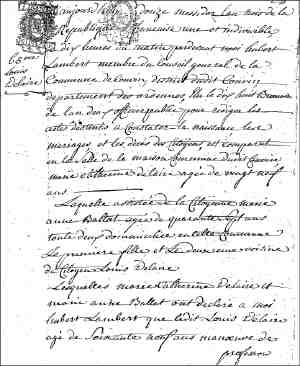 aujourdhuy douze messidor lan trois de la
Republique francaise une et indivisible
dix heures du matin pardevant moi hubert
Lambert membre du Conseil general de la
Commune de Couvin district dudit Couvin
departement des ardennes Elu le dix huit Brumaire
de lan deux officier public pour rediger les
actes destinés a Constater la naissance les
mariages, et les décès des Citoyens, est comparue
en la Salle de la maison Commune dudit Couvin
marie Catherine delaire agée de vingt neuf
ans
Laquelle assistée de la Citoyenne marie
anne Ballet agée de quarente sept ans
toutes deux domiciliées en cette Commune
Le premiere fille et Le deuxieme voisine
de Citoyen Louis delaire
Lesquelles marie Catherine Delaire et
marie anne Ballet ont declaré a moi
hubert Lambert que ledit Louis Delaire
agé de Soixante neuf ans manœuvre de
profession
Louis
delaire